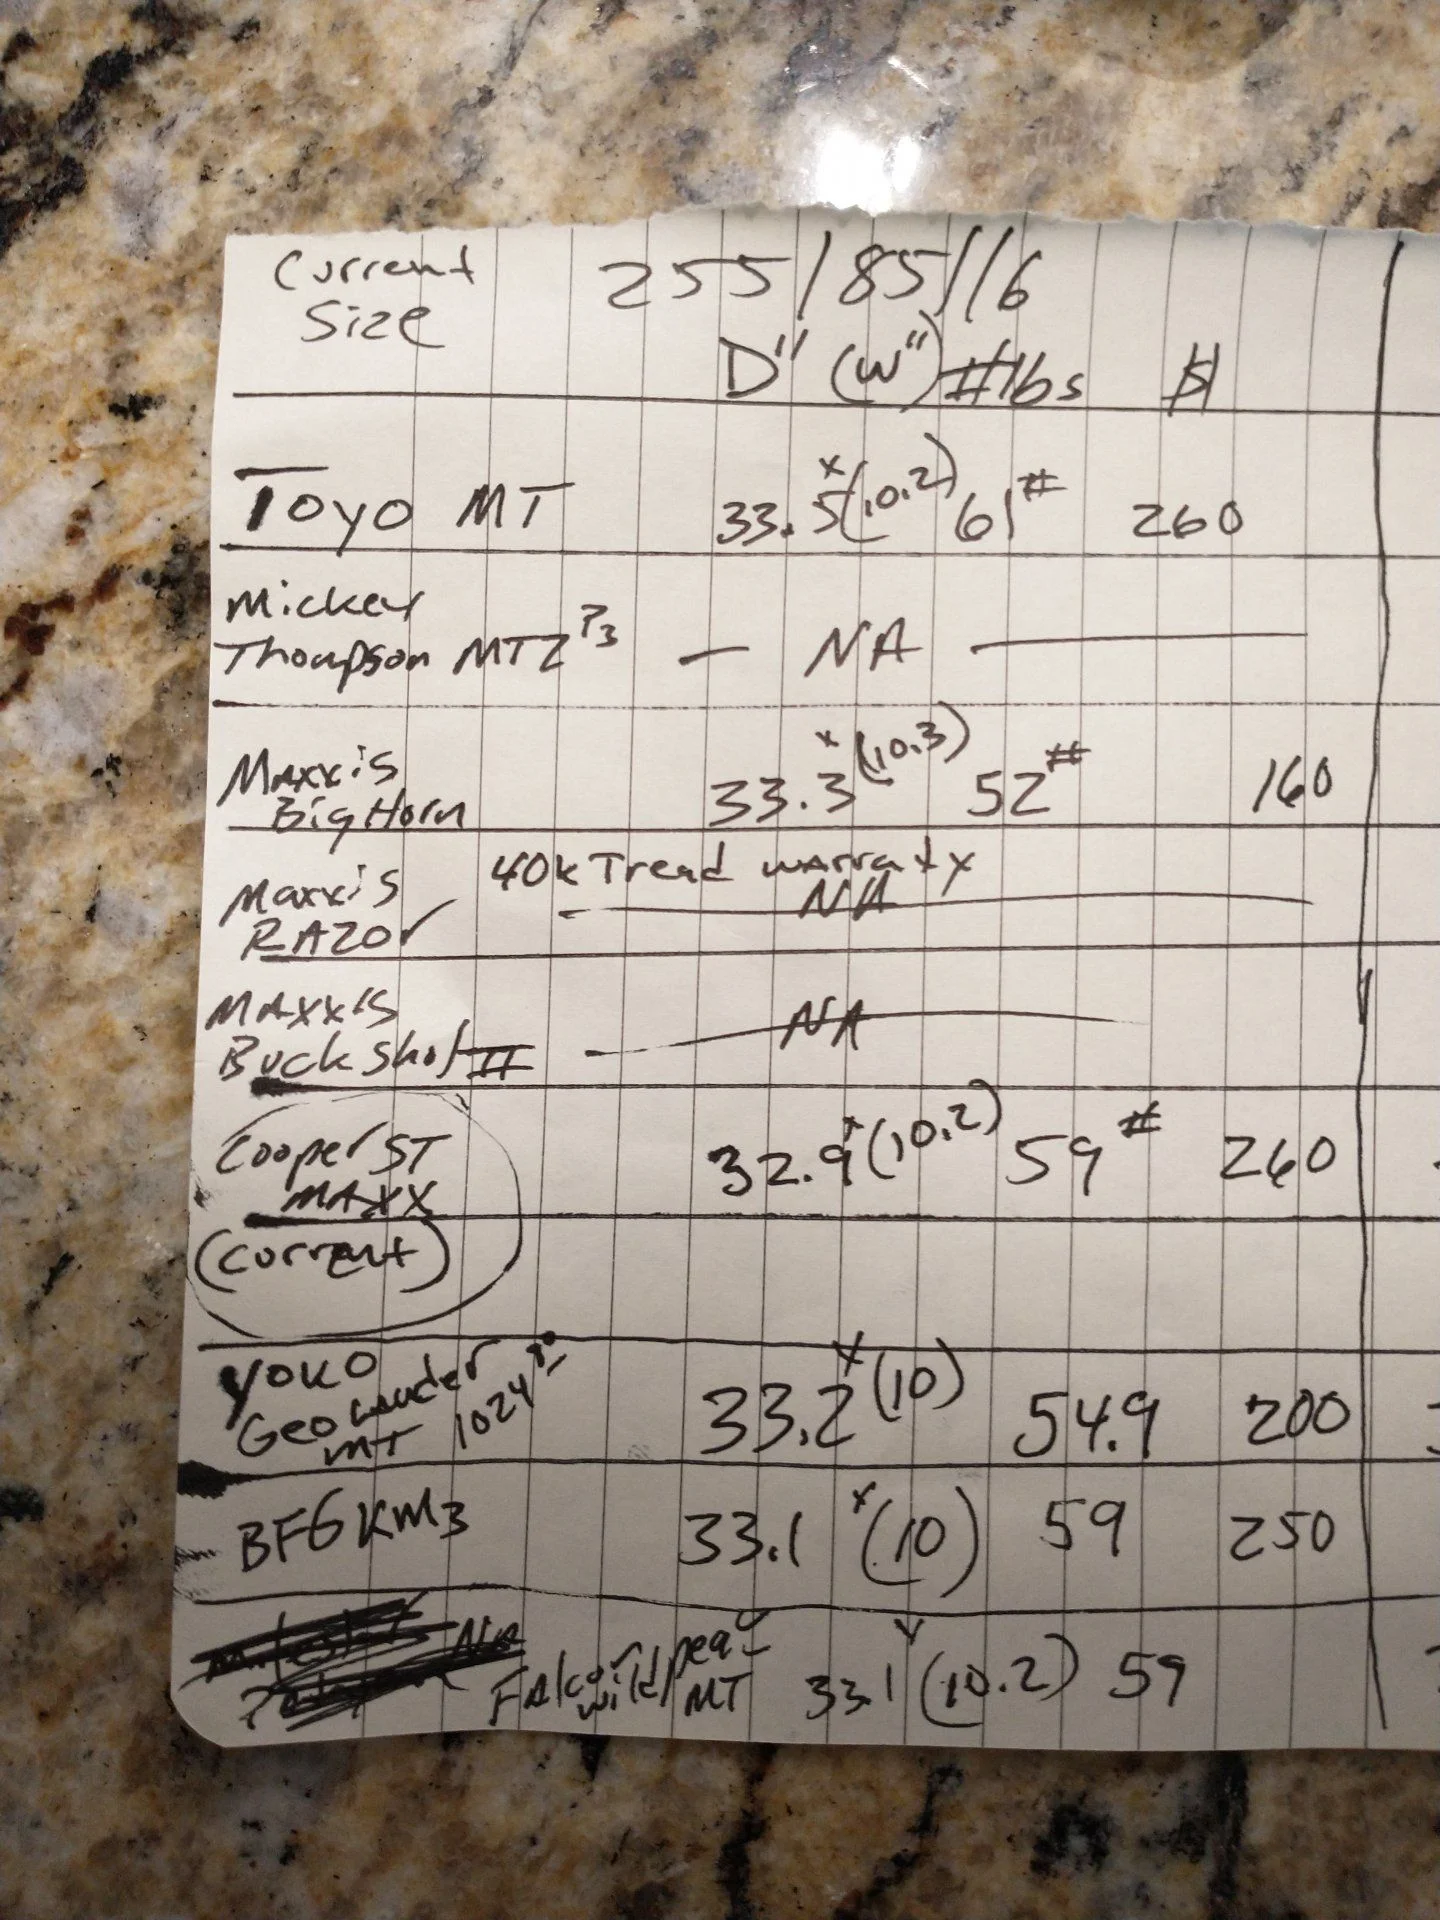 Current 255/85/16
Size
D" (W") #lbs $
Toyo MT 33.5 x (10.2) 61# 260
Mickey
Thompson MTZ P3 — NA —
Maxxis 33.3 x (10.3) 52# 160
Big Horn
40k Tread warraty
Maxxis — NA —
RAZOr
MAXXIS — NA —
Buckshot II
Cooper ST 32.9 x (10.2) 59# 260
MAXX
(current)
YOKO 33.2 x (10) 54.9 200
Geo Lander
MT
BFG KM3 33.1 x (10) 59 250
NA
Falcon wildpeak MT 33.1 x (10.2) 59